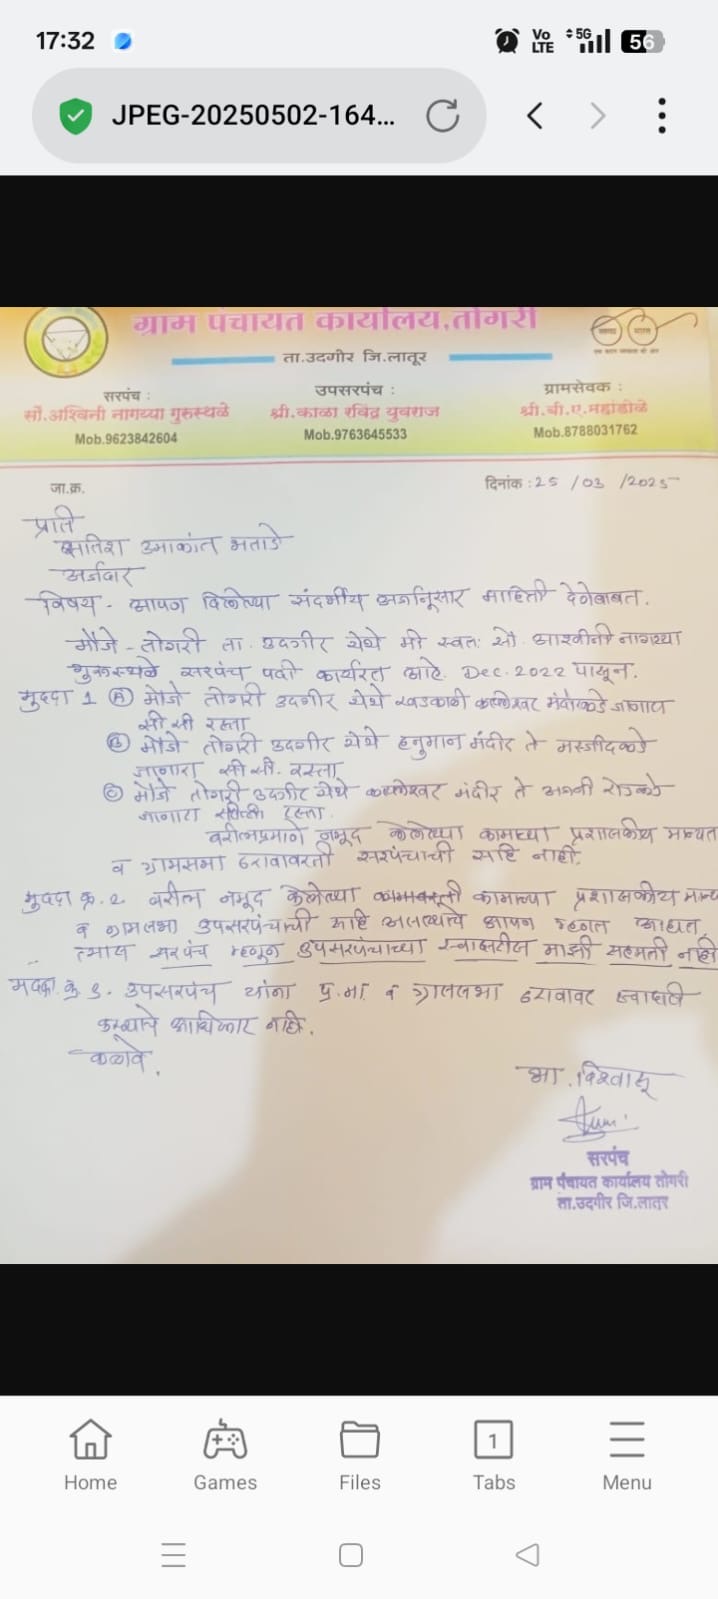 17:32
Vo LTE 5G 56
JPEG-20250502-164...
ग्राम पंचायत कार्यालय,तोगरी
ता.उदगीर जि.लातूर
सरपंच : उपसरपंच : ग्रामसेवक :
सौ.अश्विनी नागय्या गुरुस्थळे श्री.काळा रविंद्र युवराज श्री.बी.ए.महांडोळे
Mob.9623842604 Mob.9763645533 Mob.8788031762
जा.क्र. दिनांक : 25 /03 /2025
प्रति
सतिश उमाकांत भताडे
अर्जदार
विषय - आपण दिलेल्या संदर्भीय अर्जानुसार माहिती देणेबाबत.
मौजे - तोगरी ता. उदगीर येथे मी स्वतः सौ. आश्वीनी नागय्या
गुरुस्थळे सरपंच पदी कार्यरत आहे. Dec. 2022 पासून.
मुददा 1 (A) मौजे तोगरी उदगीर येथे कडे जाणारा
सी सी रस्ता
(B) मौजे तोगरी उदगीर येथे हनुमान मंदीर ते मस्जीदकडे
जाणारा सी.सी. रस्ता
(C) मौजे तोगरी उदगीर येथे मंदीर ते रोडकडे
जाणारा रस्ता.
वरीलप्रमाणे नमूद केलेल्या कामाच्या प्रशासकीय मान्यत
व ग्रामसभा ठरावावरती सरपंचाची सहि नाही.
मुददा क्र. 2 वरील नमूद केलेल्या कामाच्या प्रशासकीय मान्य
व ग्रामसभा उपसरपंचाची सहि असल्याचे आपन म्हणत आहात,
त्यास सरपंच म्हणून उपसरपंचाच्या स्वाक्षरीस माझी सहमती नाही
मुददा क्र. 3. उपसरपंच यांना प्र.मा. व ग्रामसभा ठरावावर स्वाक्षरी
करण्याचे आधिकार नाही.
कळावे.
आ. विश्वासू
सरपंच
ग्राम पंचायत कार्यालय तोगरी
ता.उदगीर जि.लातूर
Home Games Files 1 Tabs Menu